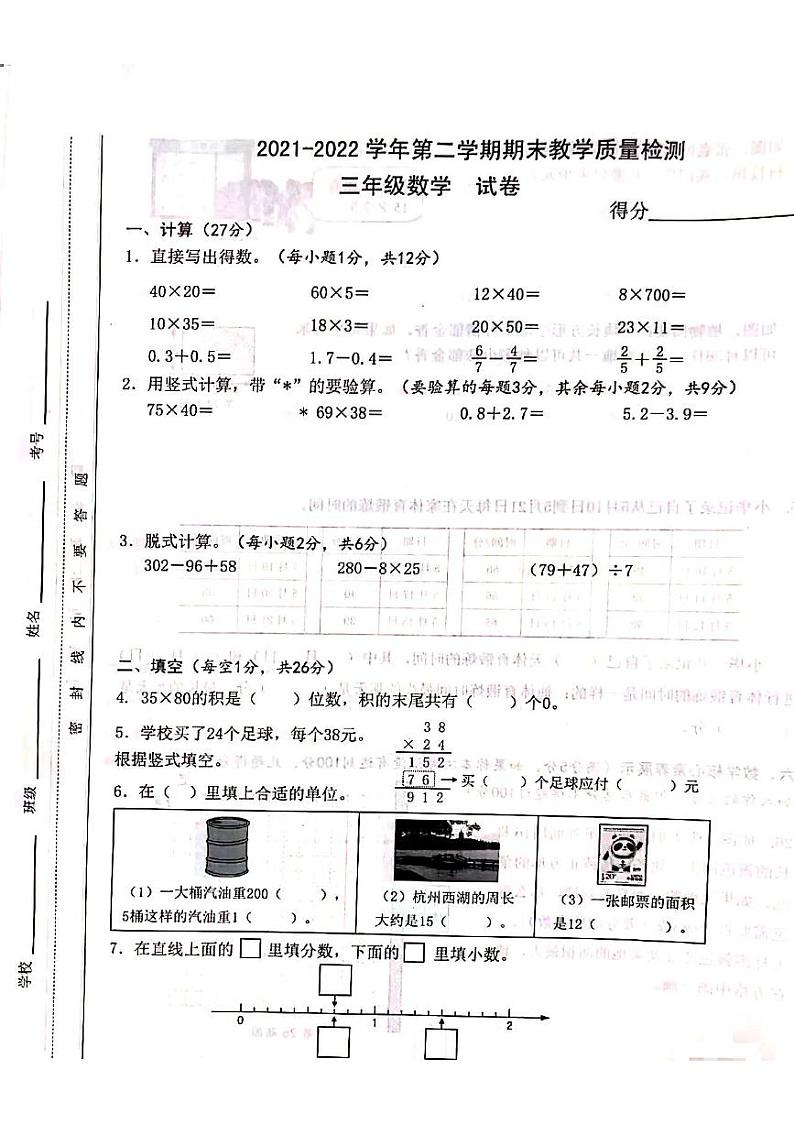 2021-2022 学年第二学期期末教学质量检测
三年级数学 试卷
得分
一、计算（27分）
1. 直接写出得数。（每小题1分，共12分）
40×20= 60×5= 12×40= 8×700=
10×35= 18×3= 20×50= 23×11=
0.3+0.5= 1.7-0.4= 6/7-4/7= 2/5+2/5=
2. 用竖式计算，带“*”的要验算。（要验算的每题3分，其余每小题2分，共9分）
75×40= * 69×38= 0.8+2.7= 5.2-3.9=
3. 脱式计算。（每小题2分，共6分）
302-96+58 280-8×25 （79+47）÷7
二、填空（每空1分，共26分）
4. 35×80的积是（ ）位数，积的末尾共有（ ）个0。
5. 学校买了24个足球，每个38元。
根据竖式填空。
3 8
× 2 4
1 5 2
7 6 →买（ ）个足球应付（ ）元
9 1 2
6. 在（ ）里填上合适的单位。
（1）一大桶汽油重200（ ），
5桶这样的汽油重1（ ）。
（2）杭州西湖的周长
大约是15（ ）。
（3）一张邮票的面积
是12（ ）。
7. 在直线上面的 □ 里填分数，下面的 □ 里填小数。
0 1 2
学校 班级 姓名 考号
密 封 线 内 不 要 答 题